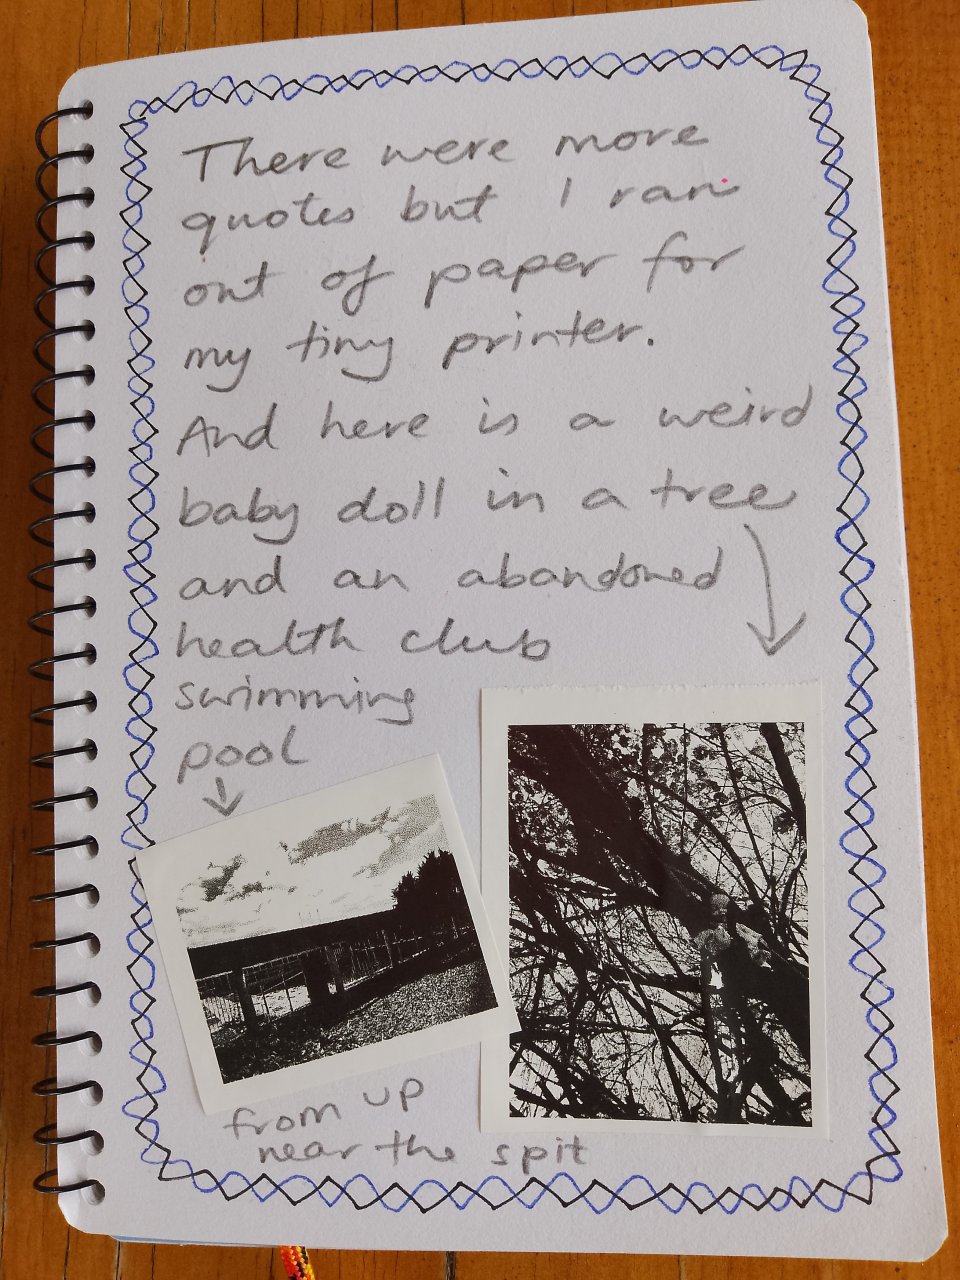 There were more
quotes but I ran
out of paper for
my tiny printer.
And here is a weird
baby doll in a tree
and an abandoned
health club
swimming
pool
from up
near the spit